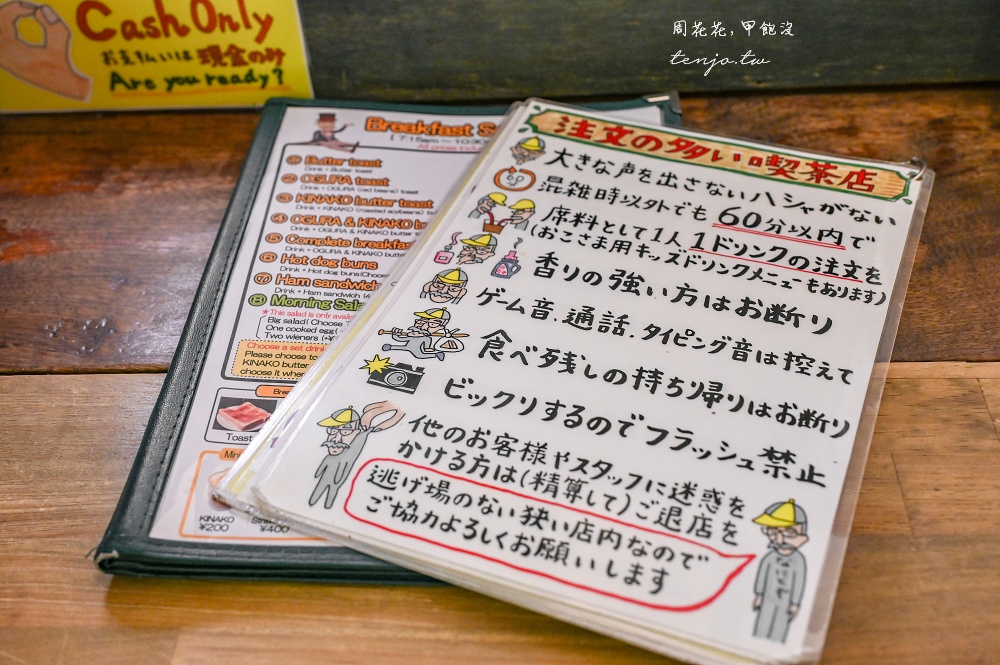 Cash Only
お支払いは現金のみ
Are you ready?
周花花,甲飽沒
tenjo.tw
Breakfast S
[7:15am ~ 10:30
All prices inclu
① Butter toast
Drink + Butter toast
② OGURA toast
Drink + OGURA (red beans) toast
③ KINAKO butter toast
Drink + KINAKO (roasted soybeans) bu
④ OGURA & KINAKO but
Drink + OGURA & KINAKO butter
⑤ Complete breakfas
Drink + OGURA & KINAKO butter
⑥ Hot dog buns
Drink + Hot dog buns(Choose
⑦ Ham sandwich
Drink + Ham sandwich (4
⑧ Morning Sala
★This salad is only availa
Big salad( Choose
One cooked egg(
Two wieners (+¥
Choose a set drink
Please choose to
KINAKO butter
choose it when
Toast
Mini
KINAKO
¥200
¥400
注文の多い喫茶店
大きな声を出さないハシャがない
混雑時以外でも60分以内で
席料として1人、1ドリンクの注文を
(おこさま用キッズドリンクメニューもあります)
香りの強い方はお断り
ゲーム音.通話.タイピング音は控えて
食べ残しの持ち帰りはお断り
ビックリするのでフラッシュ禁止
他のお客様やスタッフに迷惑を
かける方は(精算して)ご退店を
逃げ場のない狭い店内なので
ご協力よろしくお願いします